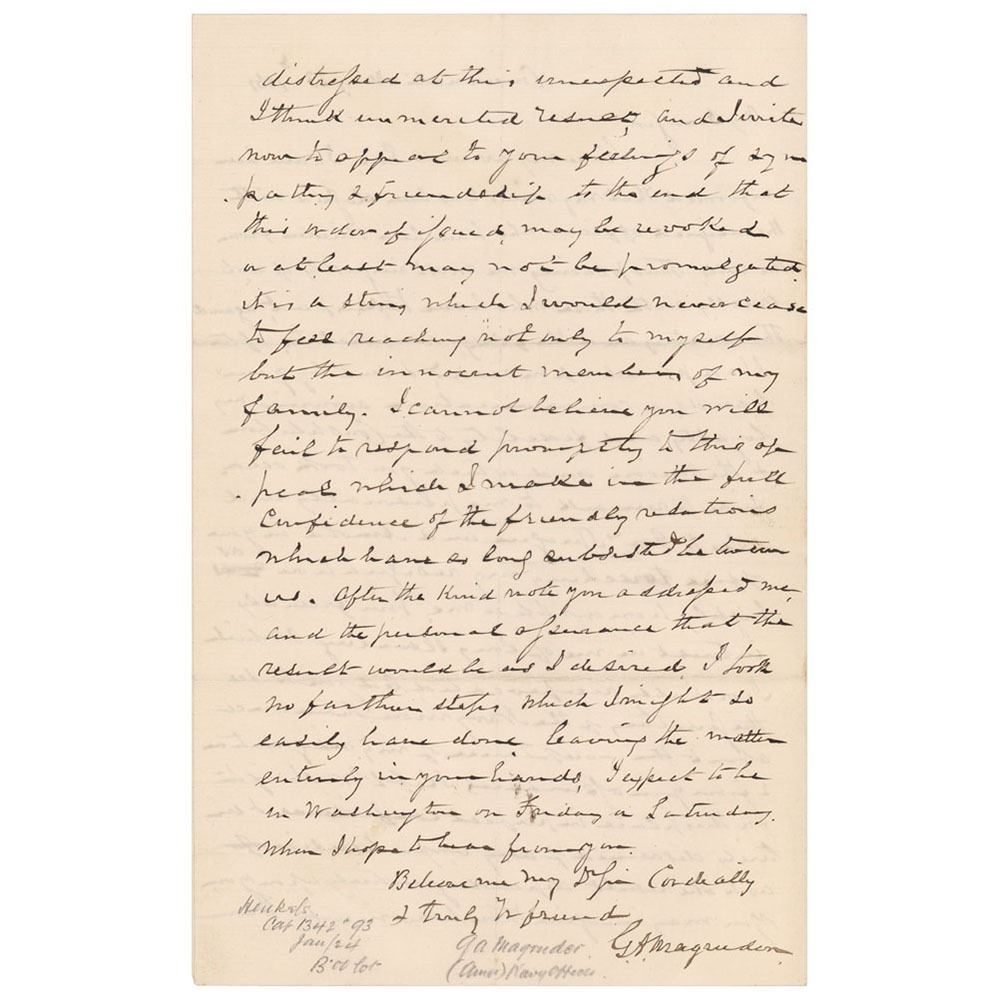 distressed at this unexpected and
I think unmerited result, and I write
now to appeal to your feelings of sym
pathy & friendship to the end that
this order if issued, may be revoked
or at least may not be promulgated.
it is a sting which I would never cease
to feel reaching not only to myself
but the innocent members of my
family. I cannot believe you will
fail to respond promptly to this ap
peal which I make in the full
confidence of the friendly relations
which have so long subsisted between
us. After the kind note you addressed me,
and the personal assurance that the
result would be as I desired, I took
no farther steps which I might so
easily have done, leaving the matter
entirely in your hands, I expect to be
in Washington on Friday or Saturday.
when I hope to hear from you.
Believe me my Dr Sir Cordially
& truly Yr friend
G A Magruder.
Henkels
Cat 1342 " 93
Jan/24
G A Magruder.
(Amer) Navy Officer